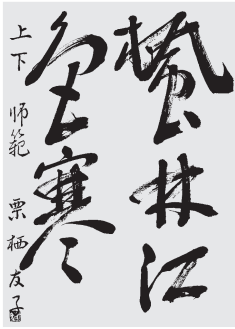 楓林江
色寒
上下 師範 栗栖友子